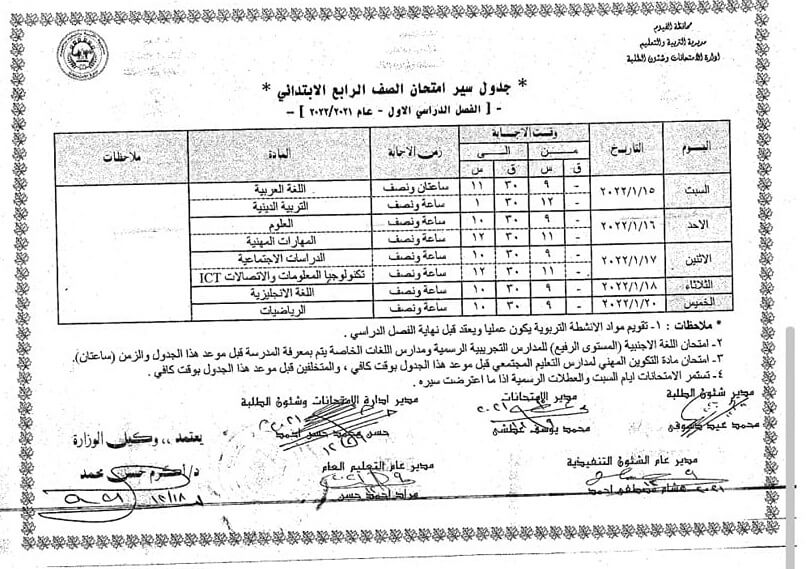 محافظة الفيوم
مديرية التربية والتعليم
إدارة الامتحانات وشئون الطلبة
* جدول سير امتحان الصف الرابع الابتدائي *
- [ الفصل الدراسي الاول - عام ٢٠٢٢/٢٠٢١ ] --
اليوم التاريخ وقت الاجابة زمن الاجابة المادة ملاحظات
من الى
ق س ق س
السبت ٢٠٢٢/١/١٥ - ٩ ٣٠ ١١ ساعتان ونصف اللغة العربية
- ١٢ ٣٠ ١ ساعة ونصف التربية الدينية
الاحد ٢٠٢٢/١/١٦ - ٩ ٣٠ ١٠ ساعة ونصف العلوم
- ١١ ٣٠ ١٢ ساعة ونصف المهارات المهنية
الاثنين ٢٠٢٢/١/١٧ - ٩ ٣٠ ١٠ ساعة ونصف الدراسات الاجتماعية
- ١١ ٣٠ ١٢ ساعة ونصف تكنولوجيا المعلومات والاتصالات ICT
الثلاثاء ٢٠٢٢/١/١٨ - ٩ ٣٠ ١٠ ساعة ونصف اللغة الانجليزية
الخميس ٢٠٢٢/١/٢٠ - ٩ ٣٠ ١٠ ساعة ونصف الرياضيات
* ملاحظات : ١- تقويم مواد الانشطة التربوية يكون عمليا ويعقد قبل نهاية الفصل الدراسي .
٢- امتحان اللغة الاجنبية (المستوى الرفيع) للمدارس التجريبية الرسمية ومدارس اللغات الخاصة يتم بمعرفة المدرسة قبل موعد هذا الجدول والزمن (ساعتان).
٣- امتحان مادة التكوين المهني لمدارس التعليم المجتمعي قبل موعد هذا الجدول بوقت كافي ، والمتخلفين قبل موعد هذا الجدول بوقت كافي .
٤- تستمر الامتحانات ايام السبت والعطلات الرسمية اذا ما اعترضت سيره .
مدير شئون الطلبة مدير الامتحانات مدير ادارة الامتحانات وشئون الطلبة
محمد عيد دسوقي محمد يوسف عطشي حسن محمد حسن احمد
يعتمد ،، وكيل الوزارة
مدير عام الشئون التنفيذية مدير عام التعليم العام
د/ اكرم حسن محمد
هشام مصطفى احمد مراد احمد حسن
١٢/١٨